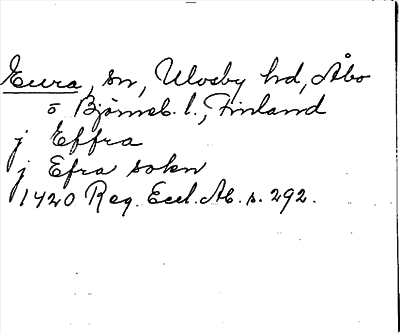 Eura, sn, Ulvsby hd, Åbo
o Björneb. l., Finland
j Effra
j Efra sokn
1420 Reg. Eccl. Ab. s. 292.